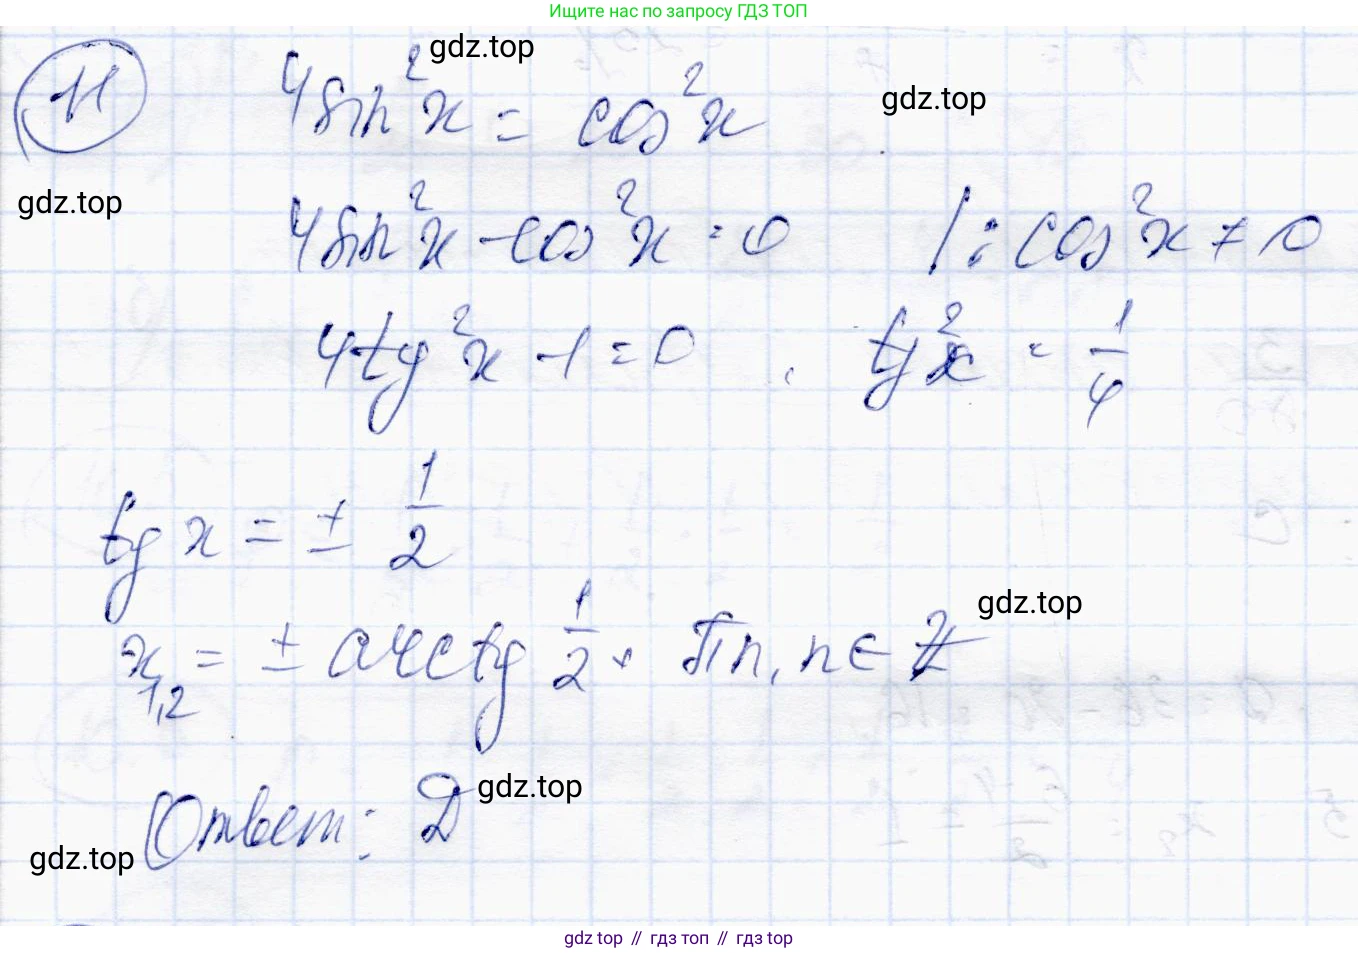 Ищите нас по запросу ГДЗ ТОП
gdz.top
11 4sin²x = cos²x
gdz.top
gdz.top
4sin²x - cos²x = 0 | : cos²x ≠ 0
4tg²x - 1 = 0, tg²x = 1/4
tg x = ± 1/2
gdz.top
x₁,₂ = ± arctg 1/2 + πn, n ∈ Z
gdz.top
Ответ: Д
gdz.top
gdz top // гдз топ // гдз top